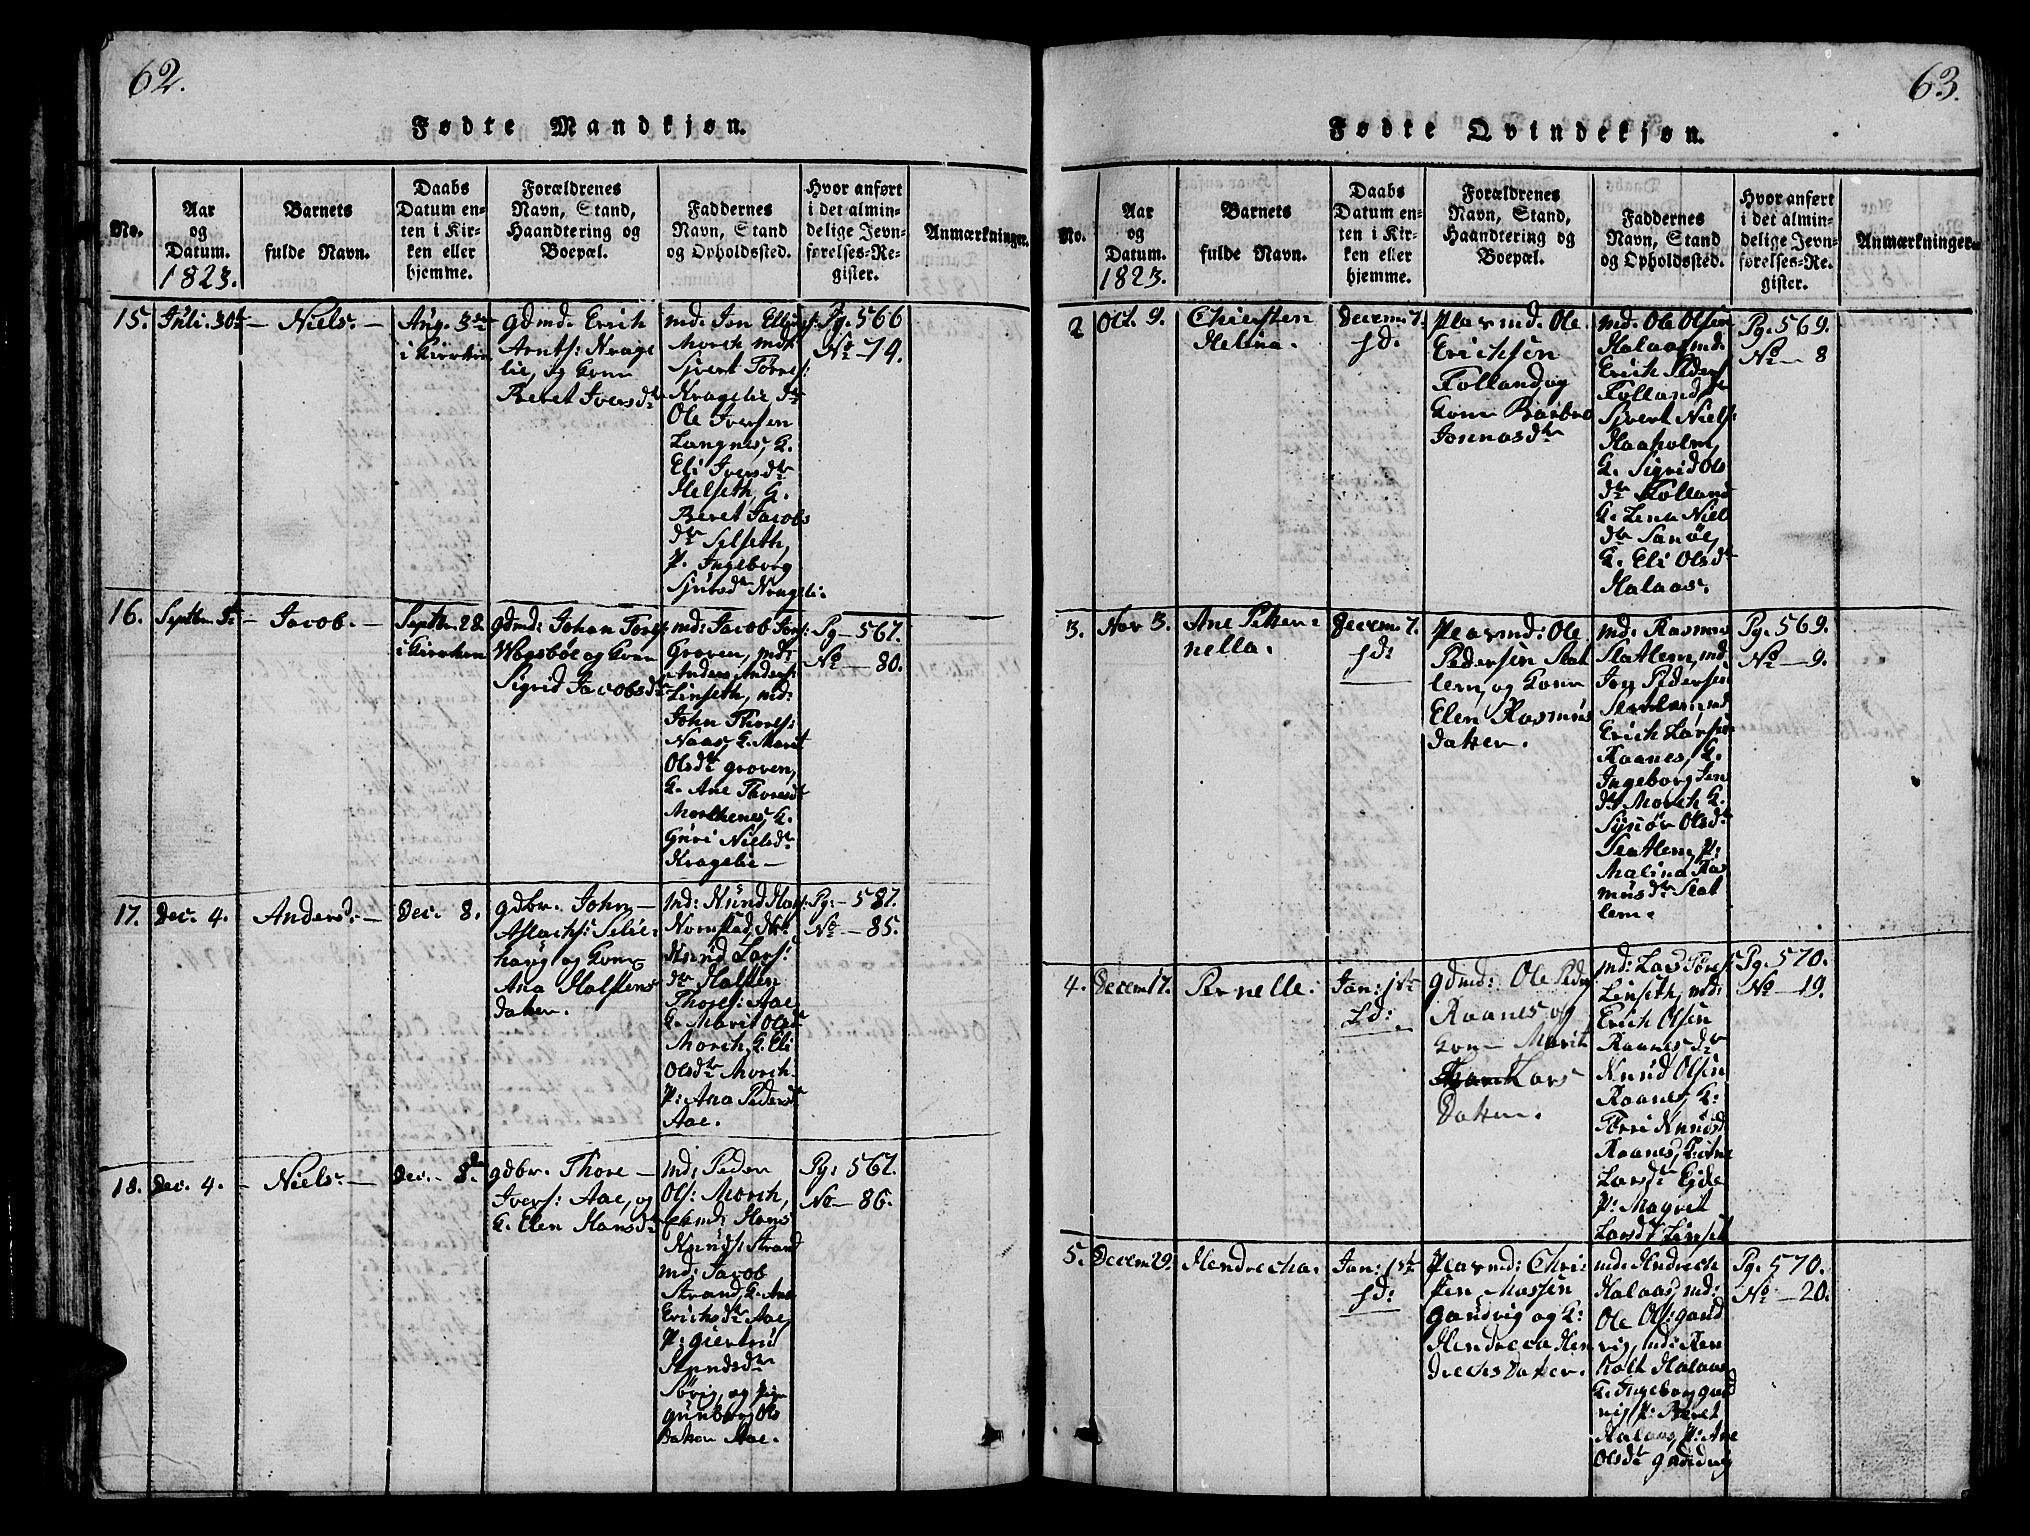 62.
Fødte Mandkjøn.
No.
Aar
og
Datum.
1823.
Barnets
fulde Navn.
Daabs
Datum en-
ten i Kir-
ken eller
hjemme.
Forældrenes
Navn, Stand,
Haandtering og
Boepæl.
Faddernes
Navn, Stand
og Opholdssted.
Hvor anført
i det almin-
delige Jevn-
førelses-Re-
gister.
Anmærkninger.
15.
Juli. 30te
– Niels. –
Aug. 3die
i Kirken
gdmd. Erich
Arnts: Krage
lie, og Kone
Beret Iversdtr
md: Jon Ellings:
Morch md:
Sjvert Torres:
Kragelie, dr
Ole Iversen
Langnes, K.
Eli Iversdtr
Helseth, K.
Beret Jacobs
dtr Selseth,
P. Ingeborg
Sjursd Krageli:
Pg. 566
No – 74.
16.
Septbr. 5te
– Jacob. –
Septbr. 28.
i Kirken
gdmd: Johan Tores:
Wogsbøe og Kone
Sigrid Jacobsdr
md: Jacob Jons:
Groven, md:
Anders Anders:
Linseth, md:
John Thores:
Naas, K. Marit
Olsdtr groven,
K. Ane Thoresdtr
Morchenes, K.
Guri Nielsdtr
Kragelie –
Pg – 567.
No – 80.
17.
Dec. 4.
Anders. –
Dec. 8.
gdbr. John –
Aslachs: Selie:
houg og Kone
Ana Halstens
datter.
md: Knud
Knud Lars:
dr Halsten
Thores: Aae
K. Marit Olsd
Morch, K. Eli
Olsdtr Morch.
P: Ana Pedersdtr
Aae.
Pg: – 587.
No – 85.
18.
Dec. 4.
– Niels. –
Dec. – 8de
gdbr. Thore –
Ivers: Aae, og
K. Elen Hansdtr
md: Peder
Ols: Morch,
md: Hans
Knuds: Strand
md: Jacob
Strand, K. Ane
Erichsdtr Aae,
P: giertrud
Knudsdtr
Sørig, og pige
gunborg Ols
datter Aae.
Pg: 567.
No – 86.
63.
Fødte Qvindekjøn.
No.
Aar
og
Datum.
1823.
Barnets
fulde Navn.
Daabs
Datum en-
ten i Kir-
ken eller
hjemme.
Forældrenes
Navn, Stand,
Haandtering og
Boepæl.
Faddernes
Navn, Stand
og Opholdssted.
Hvor anført
i det almin-
delige Jevn-
førelses-Re-
gister.
Anmærkninger.
2
Oct. 9.
Chiersten
Helina.
Decem. 7.
sd.
Plasmd: Ole
Erichsen
Folland og
Kone Barbro
Jonnasdtr
md: Ole Olsen
Halaas md:
Erich Peders
Folland, dr
Sjvert Niels:
Haaholm,
K. Sigrid Ols
dtr Folland
K. Lena Niels
dtr Sanøe,
K. Eli Olsdtr
Halaas.
Pg. 569.
No – 8
3.
Nov 3.
Ane Petter=
nella.
Decem. 7.
sd:
Plasmd: Ole
Pedersen Slat
lem, og Kone
Elen Rasmus
datter.
md: Rasmus
Slatlem, md:
Jon Pedersen
Slatlem, md
Erich Larsen
Raanes, K.
Ingeborg Jon
dtr Morch K.
Synøv Olsdtr
Slatlem, P:
Malina Ras
musdtr Slat
lem.
Pg. 569.
No – 9.
4.
Decem 17.
Pernelle.
Jan: 1ste
sd:
gdmd: Ole Peders
Raanes og
Kone – Marit
Lars
datter.
md: Lars Tores:
Linseth, md:
Erich Olsen
Raanes dr
Knud Olsen
Raanes, K:
Torri Knuds
Raanes,
Larsdtr Eide
P: Magrit
Larsdtr Linset
Pg. 570.
No – 19.
5.
Decem 29.
Hendrecha.
Jan: 1ste
sd:
Plasmd: Chri
sten Massen
gaudvig og K:
Hendrecca Hen
drechsdatter.
md: Hndrech
Halaas, md:
Ole Ols: gaud
vig, md: Ren
holt Halaas
K. Ingeborg gaud
vig, P: Beret
Halaas, P: Ane
Olsdtr gaudvig
Pg. 570.
No – 20.